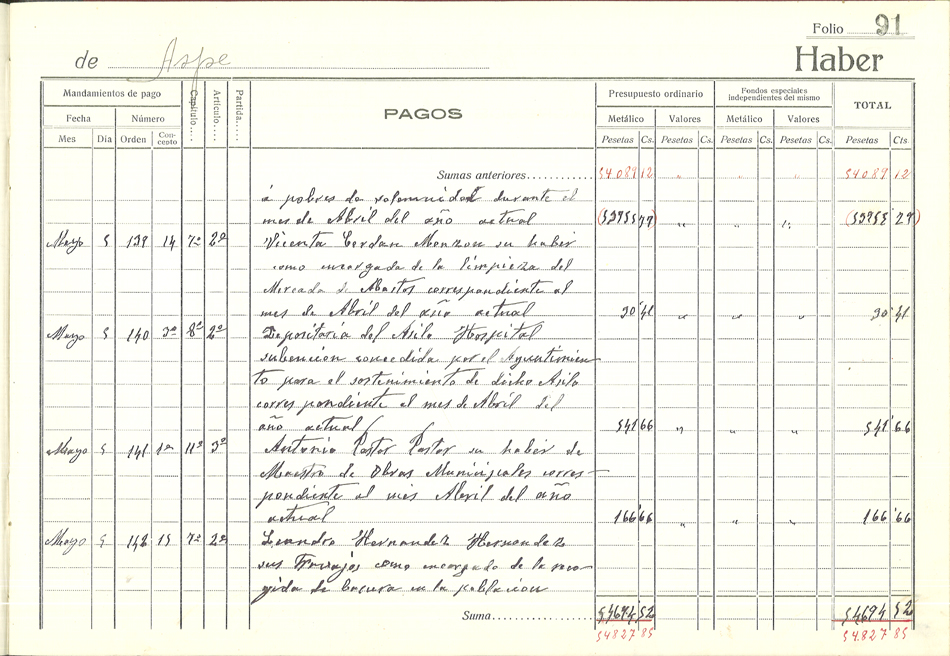 Folio 91
de Aspe Haber
Mandamientos de pago Capítulo.... Artículo.... Partida..... PAGOS Presupuesto ordinario Fondos especiales independientes del mismo TOTAL
Fecha Número Metálico Valores Metálico Valores
Mes Día Orden Concepto Pesetas Cs. Pesetas Cs. Pesetas Cs. Pesetas Cs. Pesetas Cts
Sumas anteriores............ 54.089 12 " " " 54.089 12
á pobres de solemnidad durante el
mes de Abril del año actual (53955 27 " " " (53955 27)
Mayo 5 139 14 7º 2º Vicenta Cerdan Monzon su haber
como encargada de la limpieza del
Mercado de Abastos correspondiente al
mes de Abril del año actual 30 41 " " " 30 41
Mayo 5 140 3º 8º 2º Depositaría del Asilo Hospital
subencion concedida por el Ayuntimien
to para el sostenimiento de dicho Asilo
correspondiente al mes de Abril del
año actual 541 66 " " " 541 66
Mayo 5 141 1º 11º 3º Antonio Pastor Pastor su haber de
Maestro de Obras Municipales corres-
pondiente al mes Abril del año
actual 166 66 " " " 166 66
Mayo 5 142 15 7º 2º Leandro Hernandez Hernandez
sus Travajos como encargado de la reco-
gida de basura en la poblacion
Suma................... 54694 52 54694 52
54827 85 54.827 85